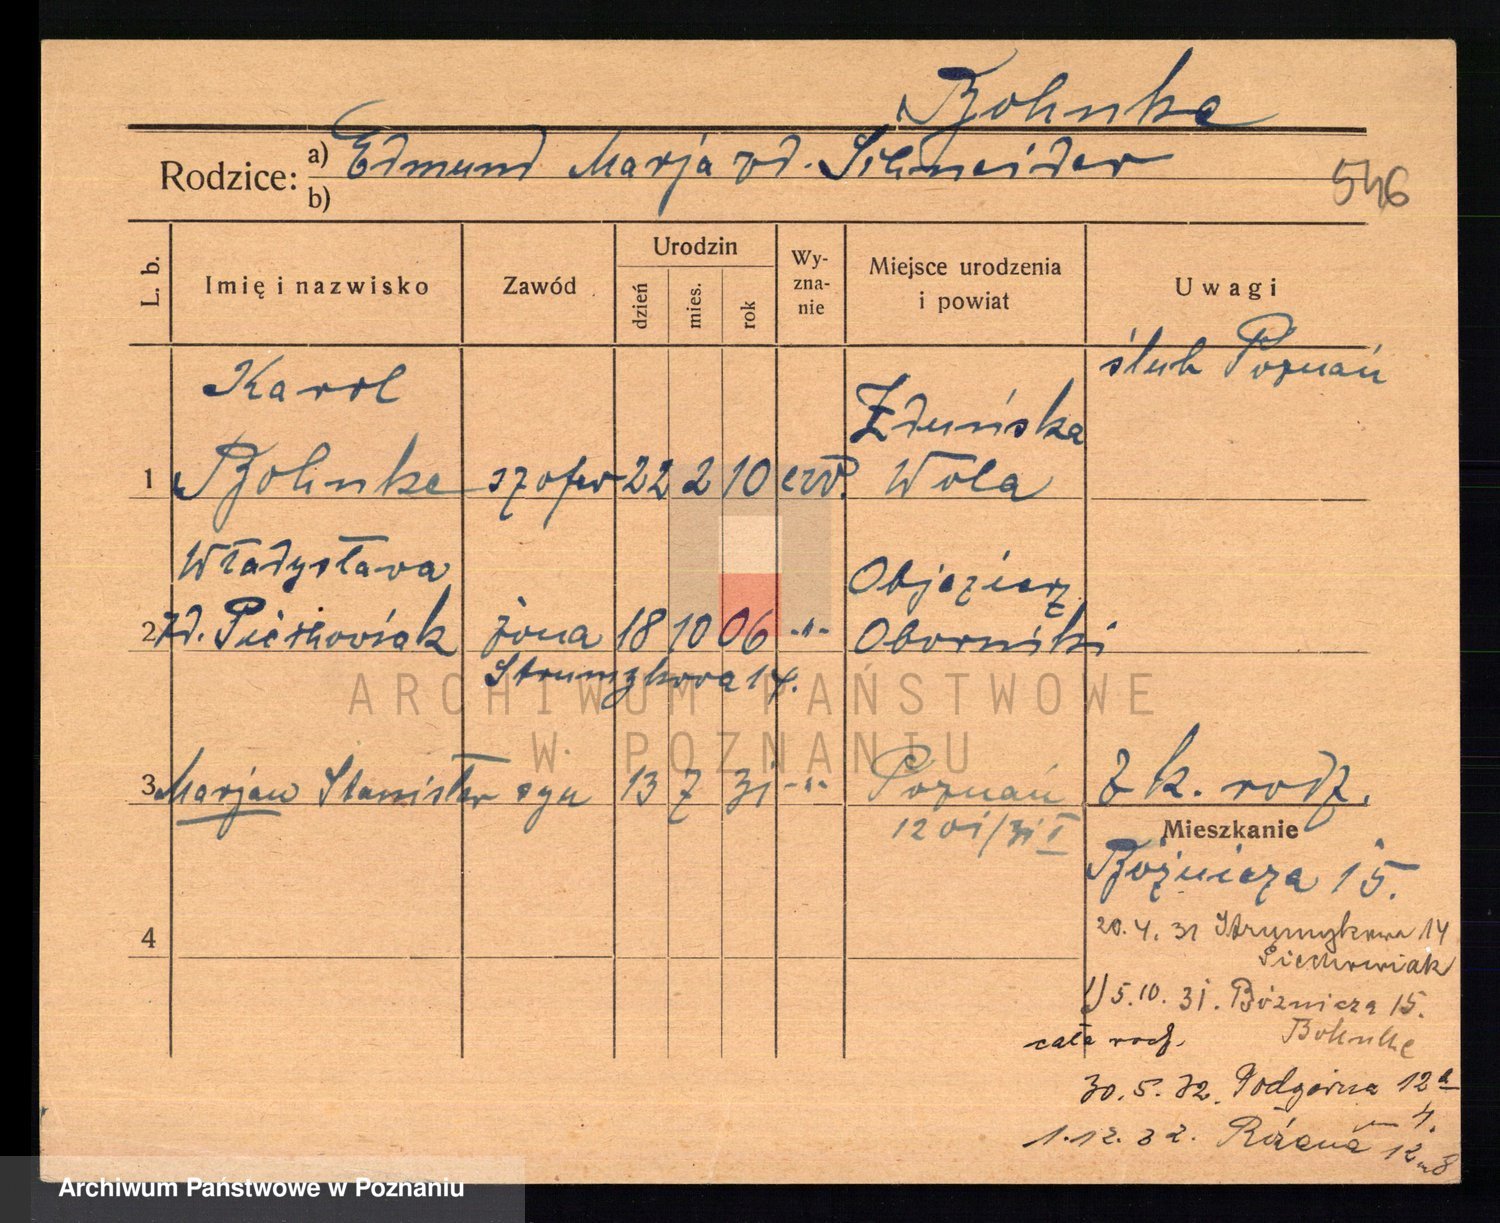 Bohnke
Rodzice: a) Edmund Marja zd. Schneider
b)
546
L. b.
Imię i nazwisko
Zawód
Urodzin
dzień
mies.
rok
Wy-
zna-
nie
Miejsce urodzenia
i powiat
Uwagi
ślub Poznań
Karol
Zduńska
1 Bohnke szofer 22 2 10 ew. Wola
Władysława
Objezierz
2 zd. Piechowiak żona 18 10 06 -"- Oborniki
Strumykowa 14.
ARCHIWUM PAŃSTWOWE
W POZNANIU
3 Marjan Stanisław syn 13 7 31 -"- Poznań z k. rodz.
Mieszkanie
Bóżnicza 15.
20.4.31 Strumykowa 14
Piechowiak
4
1) 5.10.31. Bóżnicza 15.
Bohnke
cała rodz.
30.5.32. Podgórna 12a
4.
1.12.32. Różana 12 m 8
Archiwum Państwowe w Poznaniu